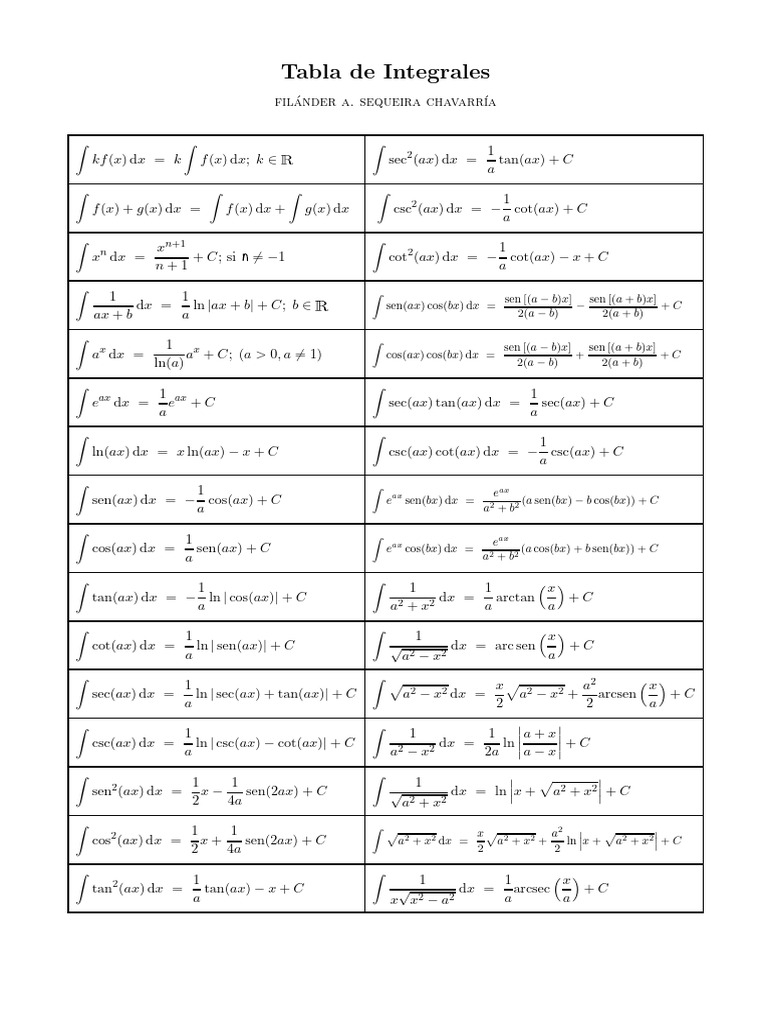 Tabla de Integrales
FILÁNDER A. SEQUEIRA CHAVARRÍA
∫ kf(x) dx = k ∫ f(x) dx; k ∈ ℝ
∫ sec²(ax) dx = 1/a tan(ax) + C
∫ f(x) + g(x) dx = ∫ f(x) dx + ∫ g(x) dx
∫ csc²(ax) dx = −1/a cot(ax) + C
∫ xⁿ dx = xⁿ⁺¹/(n + 1) + C; si n ≠ −1
∫ cot²(ax) dx = −1/a cot(ax) − x + C
∫ 1/(ax + b) dx = 1/a ln |ax + b| + C; b ∈ ℝ
∫ sen(ax) cos(bx) dx = sen [(a − b)x]/2(a − b) − sen [(a + b)x]/2(a + b) + C
∫ aˣ dx = 1/ln(a) aˣ + C; (a > 0, a ≠ 1)
∫ cos(ax) cos(bx) dx = sen [(a − b)x]/2(a − b) + sen [(a + b)x]/2(a + b) + C
∫ eᵃˣ dx = 1/a eᵃˣ + C
∫ sec(ax) tan(ax) dx = 1/a sec(ax) + C
∫ ln(ax) dx = x ln(ax) − x + C
∫ csc(ax) cot(ax) dx = −1/a csc(ax) + C
∫ sen(ax) dx = −1/a cos(ax) + C
∫ eᵃˣ sen(bx) dx = eᵃˣ/(a² + b²) (a sen(bx) − b cos(bx)) + C
∫ cos(ax) dx = 1/a sen(ax) + C
∫ eᵃˣ cos(bx) dx = eᵃˣ/(a² + b²) (a cos(bx) + b sen(bx)) + C
∫ tan(ax) dx = −1/a ln | cos(ax)| + C
∫ 1/(a² + x²) dx = 1/a arctan (x/a) + C
∫ cot(ax) dx = 1/a ln | sen(ax)| + C
∫ 1/√(a² − x²) dx = arc sen (x/a) + C
∫ sec(ax) dx = 1/a ln | sec(ax) + tan(ax)| + C
∫ √(a² − x²) dx = x/2 √(a² − x²) + a²/2 arcsen (x/a) + C
∫ csc(ax) dx = 1/a ln | csc(ax) − cot(ax)| + C
∫ 1/(a² − x²) dx = 1/2a ln |(a + x)/(a − x)| + C
∫ sen²(ax) dx = 1/2 x − 1/4a sen(2ax) + C
∫ 1/√(a² + x²) dx = ln |x + √(a² + x²)| + C
∫ cos²(ax) dx = 1/2 x + 1/4a sen(2ax) + C
∫ √(a² + x²) dx = x/2 √(a² + x²) + a²/2 ln |x + √(a² + x²)| + C
∫ tan²(ax) dx = 1/a tan(ax) − x + C
∫ 1/(x√(x² − a²)) dx = 1/a arcsec (x/a) + C